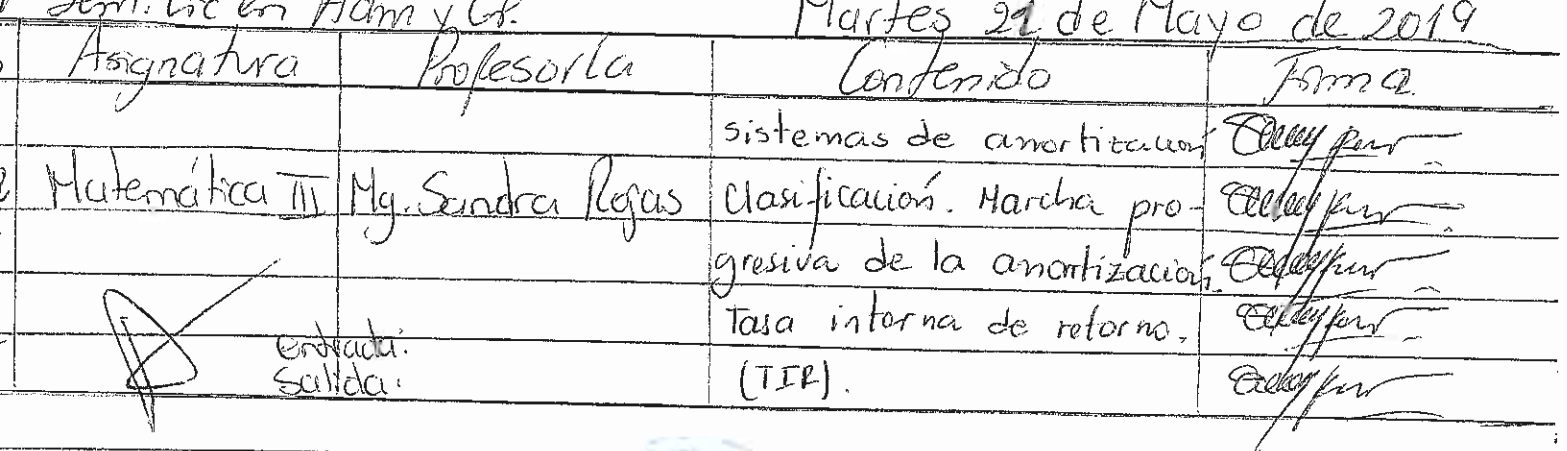 Sem. Lic en Adm y CP. Martes 21 de Mayo de 2019
Asignatura Profesor/a Contenido Firma
sistemas de amortización
Matemática III Mg. Sandra Rojas Clasificación. Marcha pro-
gresiva de la amortización.
Tasa interna de retorno.
entrada:
Salida: (TIR).